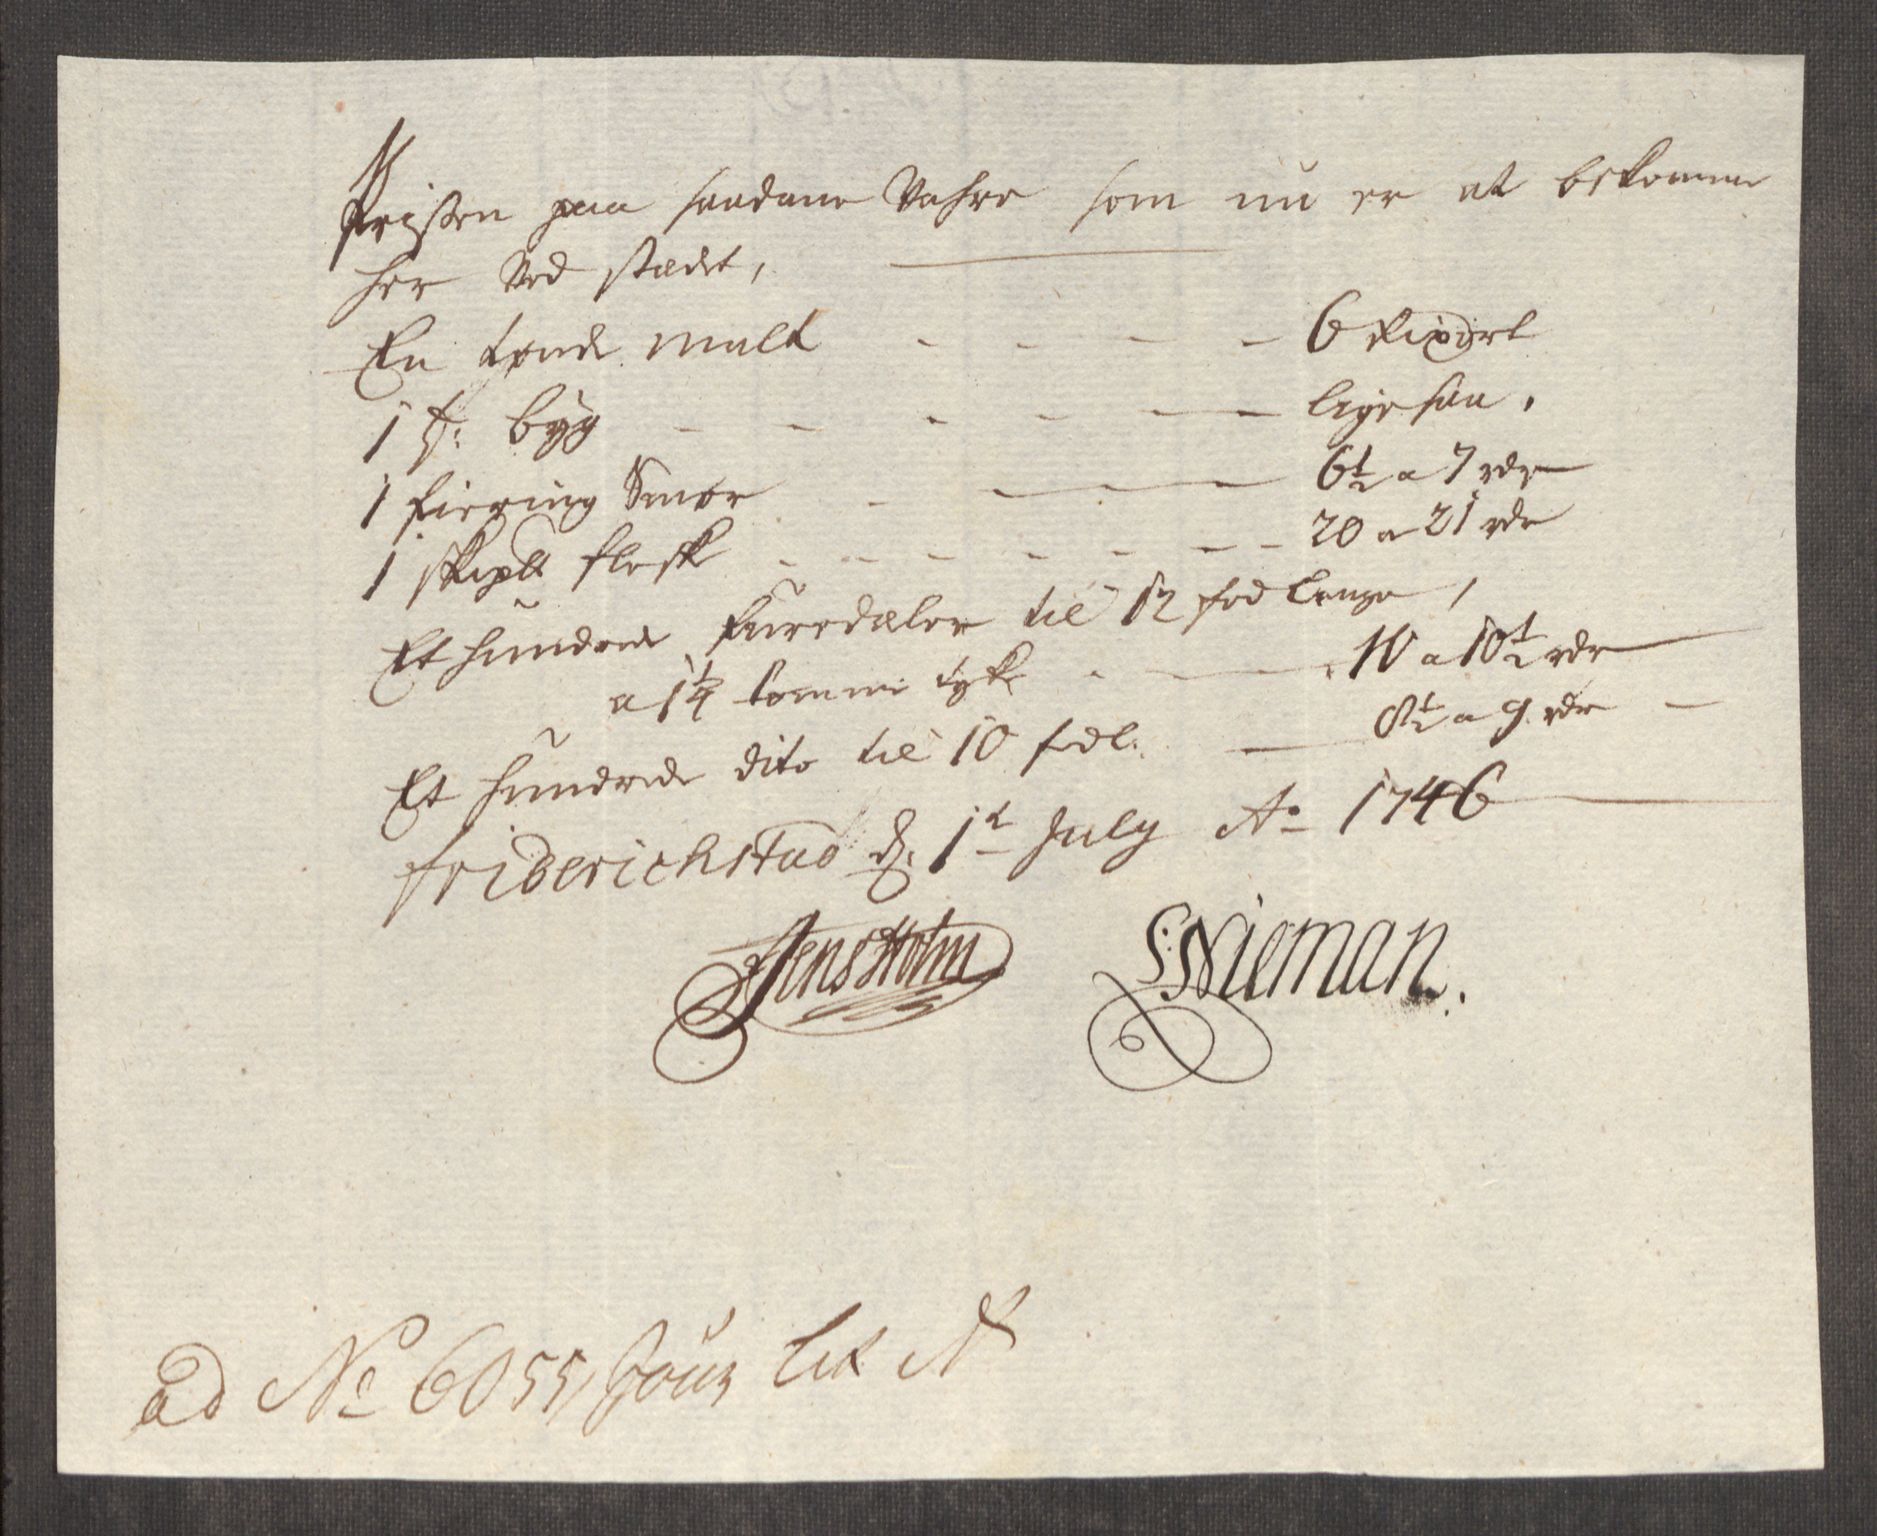 Prisen paa saadane Vahre som nu er at bekomme
her Ved stædet,
En tønde malt - - - - 6 ort
1 t: byg - - - - - - ligesaa.
1 fiering Smør - - - - 6½ a 7 rdr
1 skip℔ flesk - - - - - - - 20 a 21 rdr
Et hundrede furedæler til 12 fod lange,
a 1¼ tomme tyk - - 10 a 10½ rdr
Et hundrede dito til 10 fod l. - 8½ a 9 rdr -
Friderichstad d. 1t July Ao 1746
Jens Holm S: Nieman.
ad No 6055, Jour Lit A